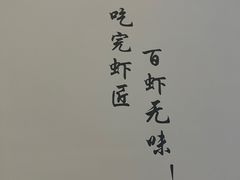 吃完虾匠
百虾无味!